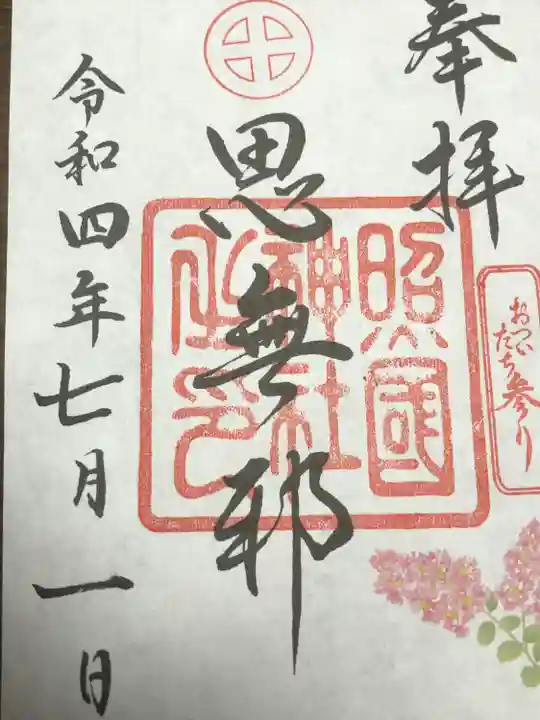 奉拝
おついたち参り
照國
神社
之印
思無邪
令和四年七月一日